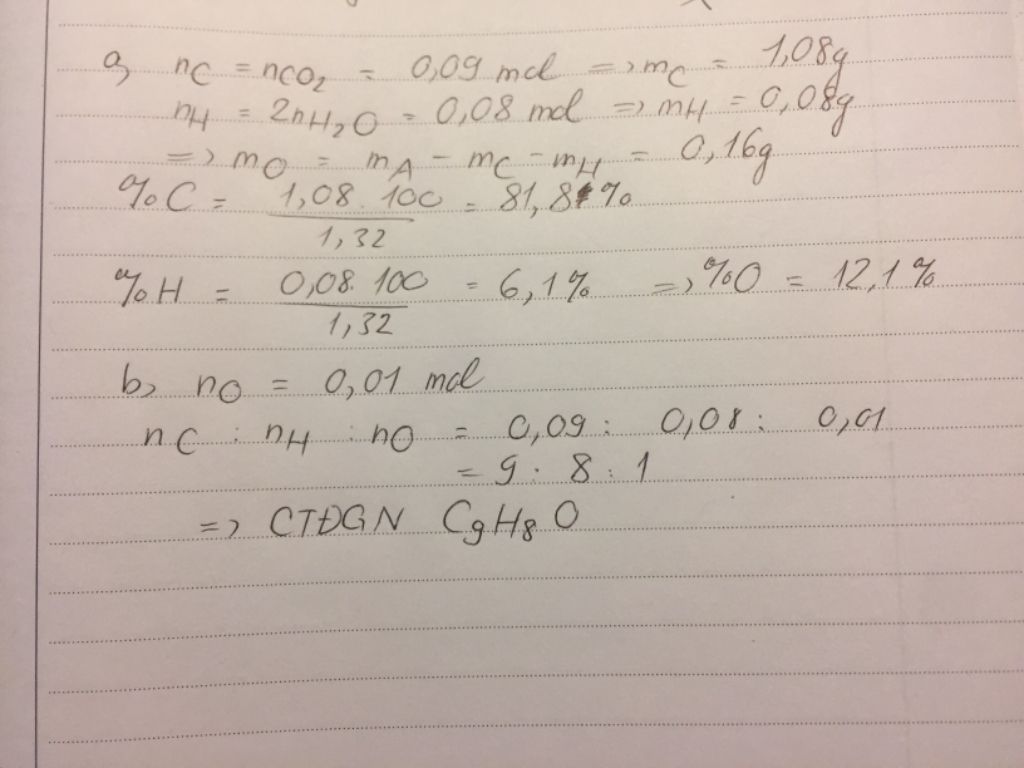 a, nC = nCO2 = 0,09 mol => mC = 1,08g
nH = 2nH2O = 0,08 mol => mH = 0,08g
=> mO = mA - mC - mH = 0,16g
%C = 1,08.100 / 1,32 = 81,8%
%H = 0,08.100 / 1,32 = 6,1% => %O = 12,1%
b, nO = 0,01 mol
nC : nH : nO = 0,09 : 0,08 : 0,01
= 9 : 8 : 1
=> CTĐGN C9H8O